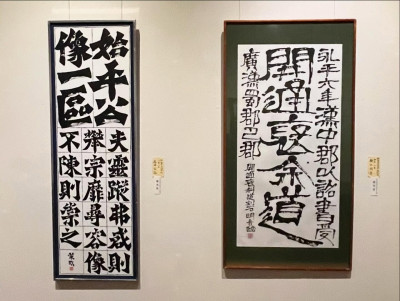 始平公
像一區
夫靈蹤弗啓則
攀宗靡尋容像
不陳則崇之
永平六年漢中郡以詔書受
開通褒余道
廣漢蜀郡巴郡